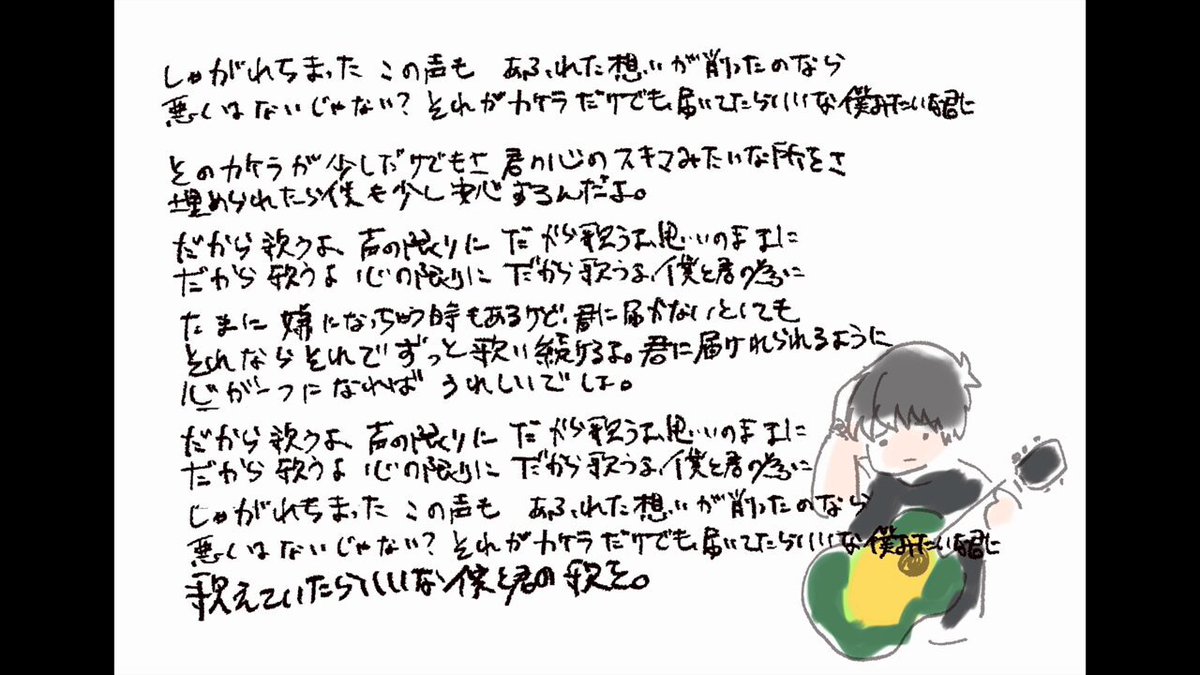 しゃがれちまった この声も あふれた想いが削ったのなら
悪くはないじゃない？それがカケラだけでも、届いてたらいいな僕みたいな君に
そのカケラが少しだけでもさ 君の心のスキマみたいな所をさ
埋められたら僕も少し安心するんだよ。
だから歌うよ、声の限りに だから歌うよ、思いのままに
だから歌うよ 心の限りに だから歌うよ、僕と君の為に
たまに嫌になっちゃう時もあるけど、君に届かないとしても
それならそれでずっと歌い続けるよ。君に届けれられるように
心が一つになれば うれしいでしょ。
だから歌うよ、声の限りに だから歌うよ、思いのままに
だから歌うよ 心の限りに だから歌うよ、僕と君の為に
しゃがれちまった この声も あふれた想いが削ったのなら
悪くはないじゃない？それがカケラだけでも、届いてたらいいな僕みたいな君に
歌えていたらいいな僕と君の歌を。